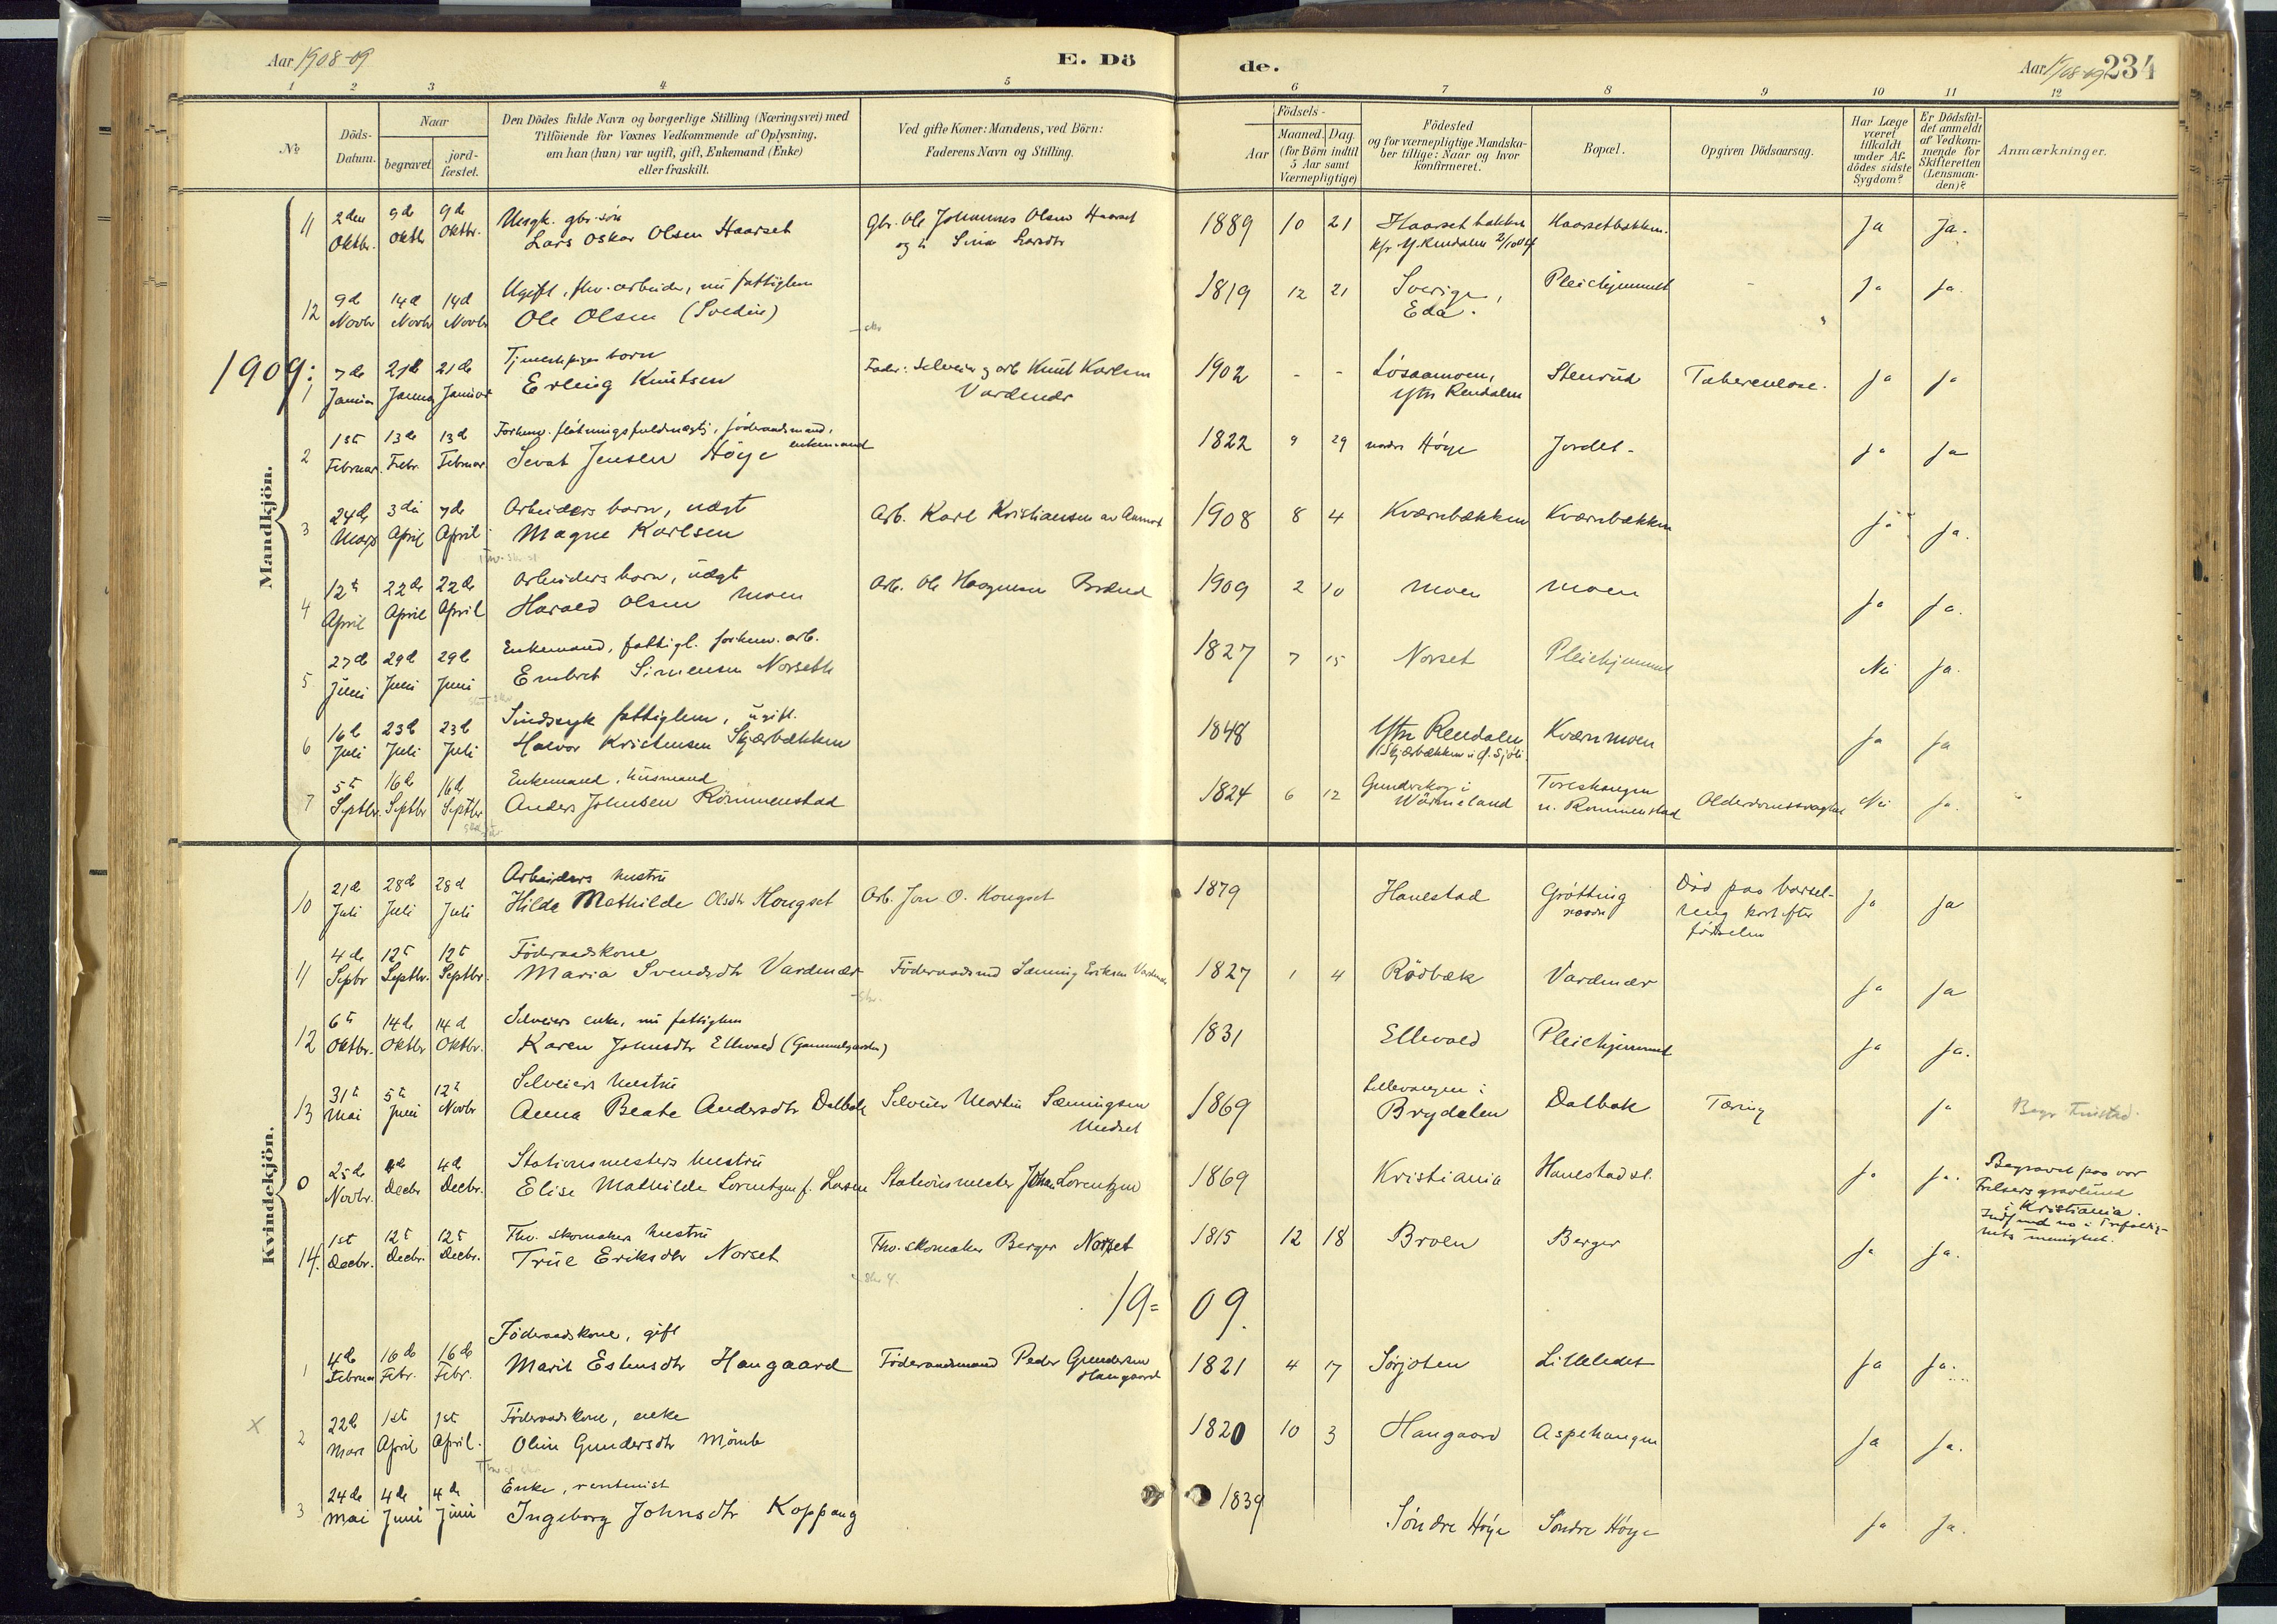 Aar 1908-09
E. Dö
de.
Aar 1908-09 234
1 2 3 4 5 6 7 8 9 10 11 12
№
Döds-
Datum.
Naar
begravet
jord-
fæstet.
Den Dödes fulde Navn og borgerlige Stilling (Næringsvei) med
Tilföiende for Voxnes Vedkommende af Oplysning,
om han (hun) var ugift, gift, Enkemand (Enke)
eller fraskilt.
Ved gifte Koner: Mandens, ved Börn:
Faderens Navn og Stilling.
Födsels-
Aar
Maaned. Dag.
(for Börn indtil
5 Aar samt
Værnepligtige)
Födested
og for værnepligtige Mandska-
ber tillige: Naar og hvor
konfirmeret.
Bopæl.
Opgiven Dödsaarsag.
Har Læge
været
tilkaldt
under Af-
dödes sidste
Sygdom?
Er Dödsfal-
det anmeldt
af Vedkom-
mende for
Skifteretten
(Lensman-
den)?
Anmærkninger.
Mandkjön.
11 2den 9de 9de Ungk. gbr. søn Gbr. Ole Johannes Olsen Haarset 1889 10 21 Haarsetbakken Haarsetbakken. Ja Ja.
Oktbr. Oktbr Oktbr. Lars Oskar Olsen Haarset og h Sina Larsdtr
12 9d 14d 14d Ugift, fhv. arbeider, nu fattiglem 1819 12 21 Sverige, Pleiehjemmet Ja Ja.
Novbr Novbr Novbr Ole Olsen (Svedin) Eda.
1909:
1 7de 21de 21de barn Fader: Selveier og arb Knut Karlsen 1902 - - Løsaamoen, Stenrud Tuberculose. Ja Ja
Januar Januar Januar Erling Knutsen Vardenær Ytre Rendalen
2 1ste 13de 13d Forhenv. fløtningsfuldmægt., føderaadsmand, enkemand 1822 9 29 nordre Høye Jordet. Ja Ja
Februar. Febr. Februar. Sevat Jensen Höye
3 24de 3die 7de Arbeiders barn, uægt Arb. Karl Kristiansen av Aamot 1908 8 4 Kværnbækken Kværnbækken Ja Ja.
Mars April April Magne Karlsen
4 12te 22de 22de Arbeiders barn, uægt Arb. Ole Haagensen 1909 2 10 Moen Moen Ja Ja.
April April April Harald Olsen Moen
5 27d 29d 29d Enkemand, fattigl. forhenv. arb. 1827 7 15 Norset Pleiehjemmet Nei Ja.
Juni Juni Embret Simensen Norseth
6 16d 23d 23d Sindssyk fattiglem, ugift. 1848 Ytre Rendalen Kværnmoen Ja Ja
Juli Juli Juli Halvor Kristensen Skjærbækken
7 5te 16de 16de Enkemand, husmand 1824 6 12 Gunderskog i Toreshaugen Alderdomssvaghed Nei Ja.
Septbr. Septbr Septbr Anders Johnsen Römmenstad Wärmeland u. Rommenstad
Kvindekjön.
10 21de 28de 28d Arbeiders hustru 1879 Hanestad Grötting Död paa barsel- Ja Ja
Juli Juli Juli Hilda Mathilde Olsdtr Kongset Arb. Jon O. Kongset nordre seng kort efter
fødselen
11 4de 12te 12te Föderaadskone 1827 1 4 Rödbæk Vardenær Ja Ja
Septbr Septbr. Septbr. Maria Svendsdtr Vardenær Föderaadsmd Sæming Eriksen Vardenær
12 6te 14de 14d Selveiers enke, nu fattiglem 1831 Ellevold Pleiehjemmet Ja Ja.
Oktbr. Oktbr Oktbr. Karen Johnsdtr Ellevold (Gammelgarden)
13 31te 5te 12te Selveiers hustru Lillevangen i
Mai Juni Novbr Anna Beate Andersdtr Dalbak Selveier Martin Sæmingsen 1869 Brydalen Dalbak Tæring Ja Begr. Tinsted.
Undset
0 25de 4de 4d Stationsmesters hustru Begravet paa vor
Novbr. Decbr Decbr. Elise Mathilde Lorentzen f. Larsen Stationsmester Johan Lorentzen 1869 Kristiania Hanestad st. Ja Ja. Frelsers gravlund
i Kristiania.
14. 1ste 12te 12te Fhv. skomakers hustru 1815 12 18 Broen Berger Ja Ja.
Decbr. Decbr. Decbr. True Eriksdtr Norset Fhv. skomaker Berger Norset
19= 09.
1 4de 16de 16de Föderaadskone, gift
Februar Febr. Febr. Marit Estensdtr Haugaard Föderaadsmand Peder Gundersen 1821 4 17 Sørjoten Lilleledet Ja Ja.
Haugaard
X 2 22de 1ste 1ste Föderaadskone, enke 1820 10 3 Haugaard Aspehaugen Ja Ja.
Mars April April. Oline Gundersdtr
3 24de 4de 4de Enke, rentenist 1839
Mai Juni Juni Ingeborg Johnsdtr Koppang Söndre Höye Söndre Höye Ja Ja.